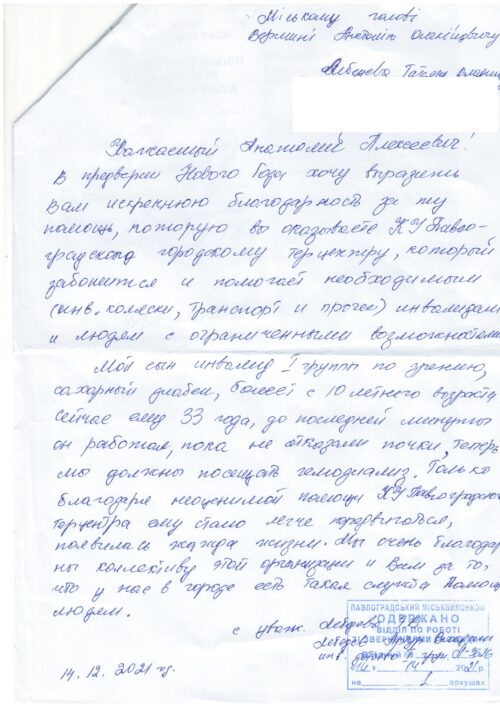 Міському голові
Вершині Анатолію Олексійовичу
Уважаемый Анатолий Алексеевич!
В предверии Нового Года хочу выразить
Вам искреннюю благодарность за ту
помощь, которую вы оказываете КУ Павло-
градскому городскому терцентру, который
заботится и помогает необходимым
(инв. коляски, транспорт и прочее) инвалидам
и людям с ограниченными возможностями
Мой сын инвалид I группы по зрению,
сахарный диабет, болеет с 10 летнего возраста
Сейчас ему 33 года, до последней минуты
он работал, пока не отказали почки, теперь
мы должны посещать гемодиализ. Только
благодаря неоценимой помощи КУ Павлоградского
терцентра ему стало легче передвигаться,
появилась жажда жизни. Мы очень благодар
ны коллективу этой организации и Вам за то,
что у нас в городе есть такая служба помощи
людям.
с уваж.
14.12.2021 г.
ПАВЛОГРАДСЬКИЙ МІСЬКВИКОНКОМ
ОДЕРЖАНО
ВІДДІЛ ПО РОБОТІ
ЗІ ЗВЕРНЕННЯМИ
2021 р.
на 1 аркушах